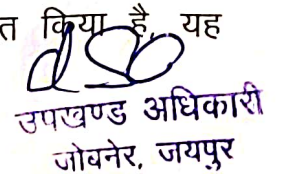 त किया है, यह
उपखण्ड अधिकारी
जोबनेर, जयपुर